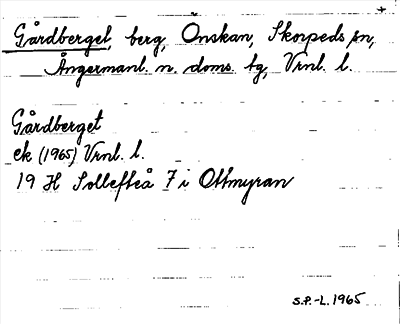 Gårdberget, berg, Önskan, Skorpeds sn,
Ångermanl. n. doms. tg, Vrnl. l.
Gårdberget
ek (1965) Vrnl. l.
19 H Sollefteå 7 i Ottmyran
S.P.-L. 1965